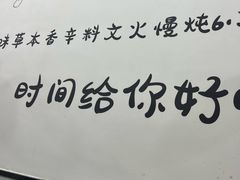 味草本香辛料文火慢炖6.
时间给你好